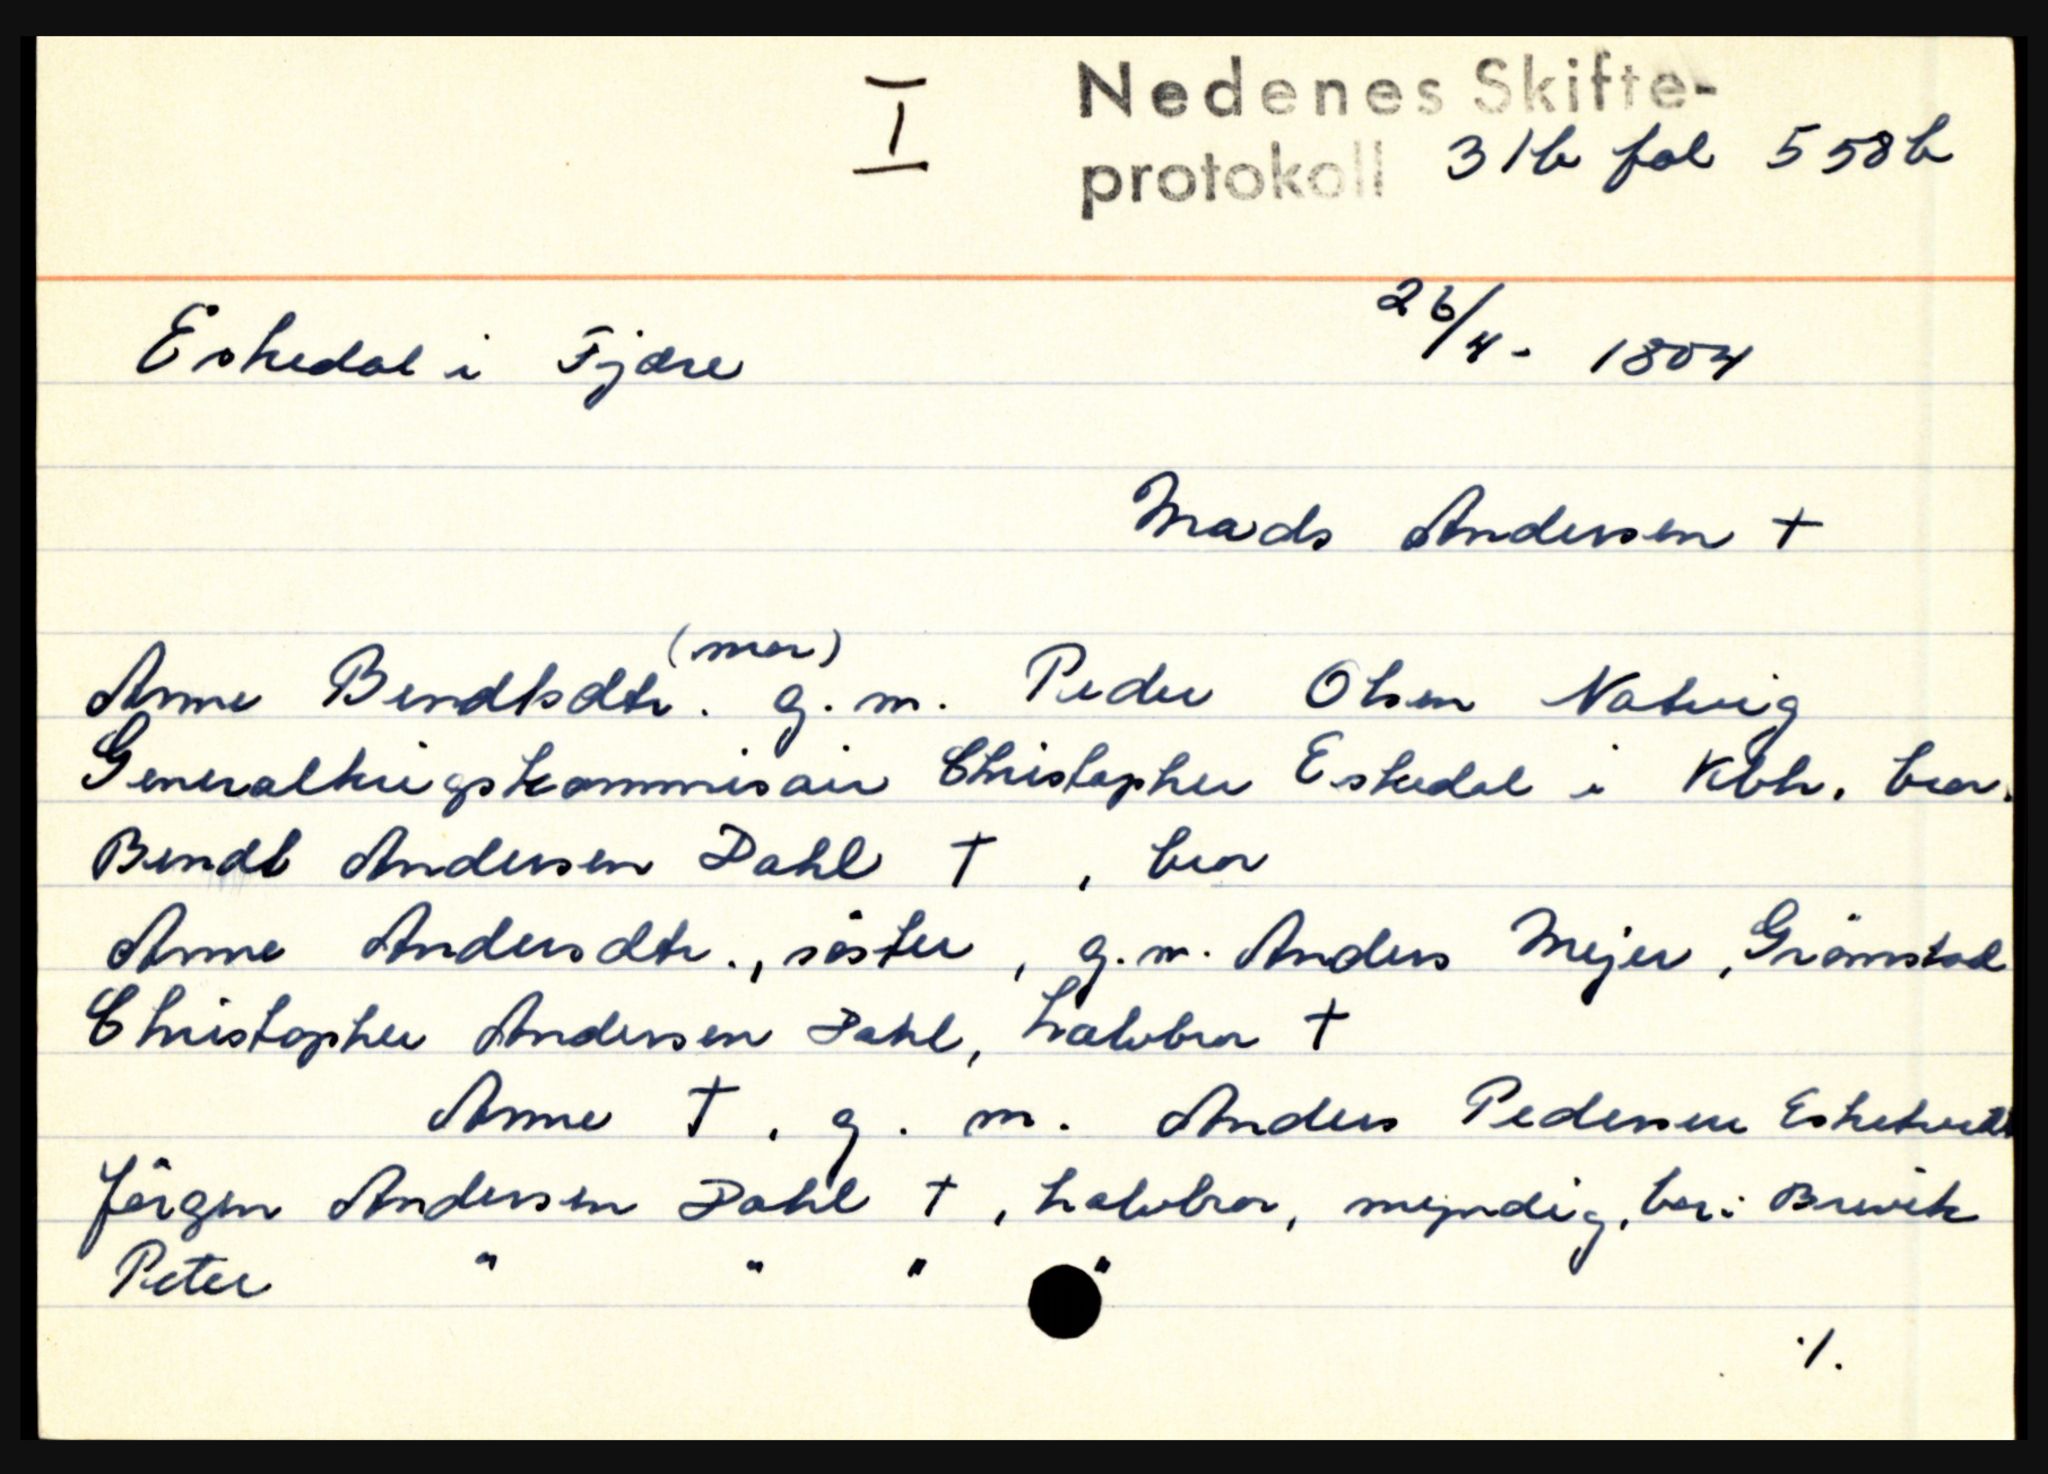 I
Nedenes Skifte-
protokoll 31b fol 558b
Eskedal i Fjære 26/4. 1804
Mads Andersen †
(mor)
Anne Bendtsdtr. g.m. Peder Olsen Natvig
Generalkrigskommisair Christopher Eskedal i Kbh. bror.
Bendt Andersen Dahl † , bror
Anne Andersdtr., söster, g.m. Anders Mejer, Grömstad
Christopher Andersen Dahl, halvbror †
Anne †. g. m. Anders Pedersen
Jörgen Andersen Dahl †, halvbror, myndig, bor i Brevik
Peter " " " "
·/.